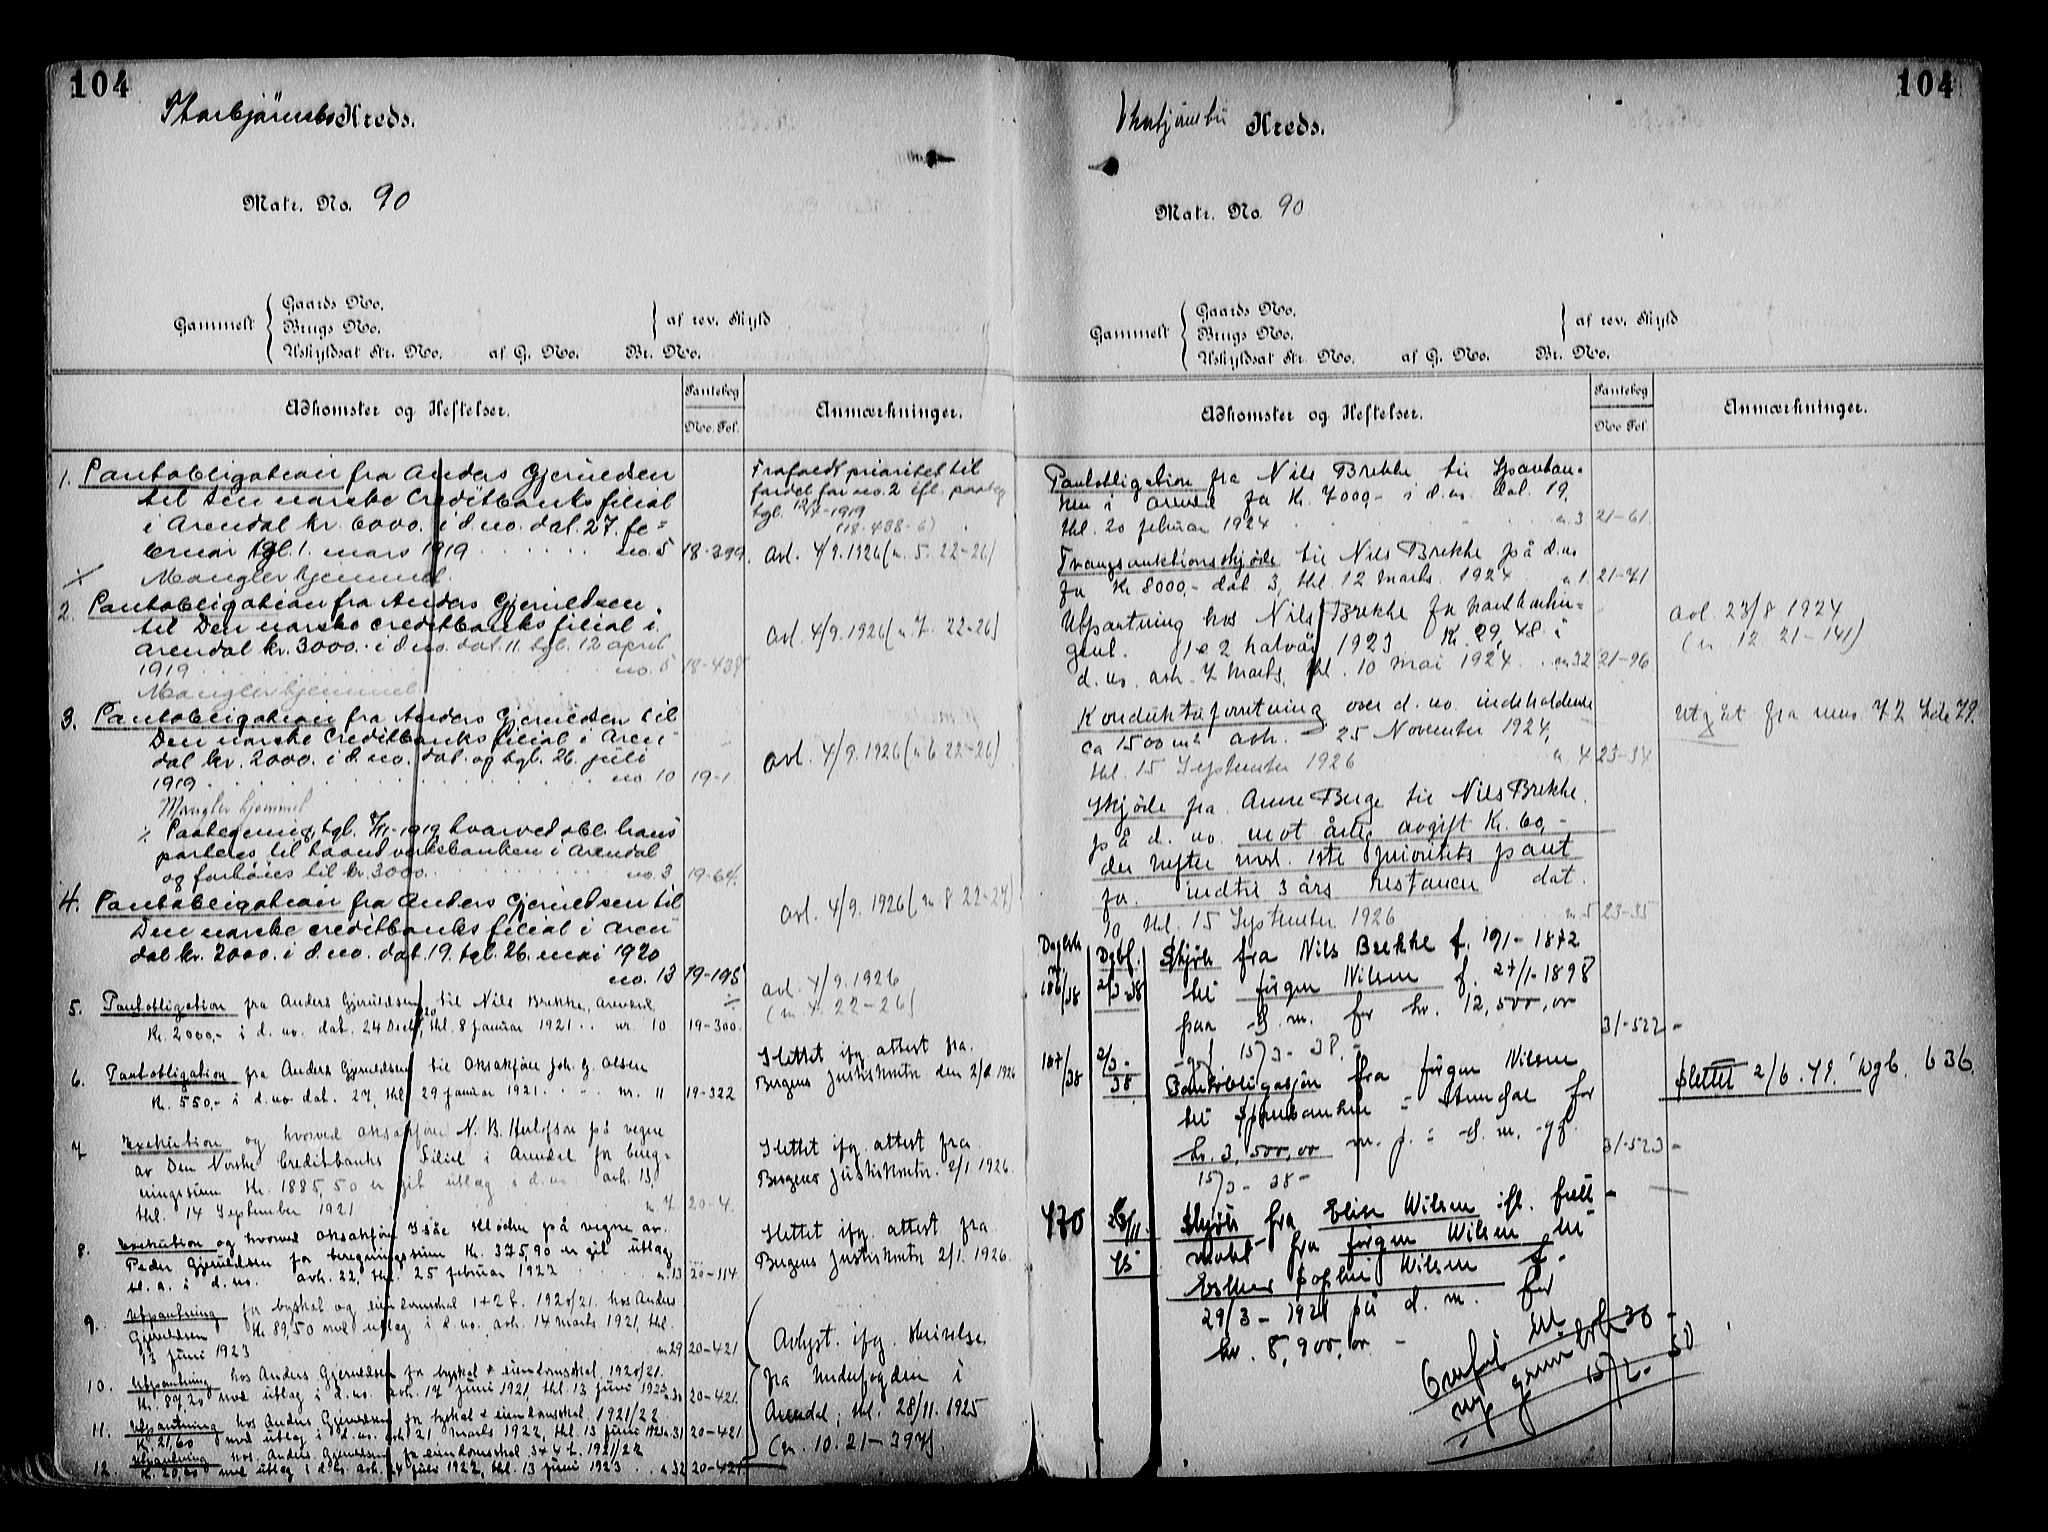 104
Thorbjørnsbo Kreds.
Matr. No. 90
Gammelt
Gaards No.
Brugs No.
af rev. Skyld
Uskyldsat Str. No. af G. No. Br. No.
Adkomster og Heftelser.
Pantebog
No. Fol.
Anmærkninger.
1. Pantobligation fra Anders Gjeruldsen
til Den norske Creditbanks filial
i Arendal kr. 6000. i d. no. dat. 27. fe=
bruar tgl. 1. mars 1919 no. 5 18-399
Mangler hjemmel.
Frafaldt prioritet til
fordel for no. 2 ifl. paateg
tgl. 12/4-1919
(18-488-6)
avl. 4/9. 1926 (n. 5. 22-26)
2. Pantobligation fra Anders Gjeruldsen
til Den norske Creditbanks filial i
Arendal kr. 3000. i d. no. dat. 11. tgl. 12 april
1919 no. 5 18-438
Mangler hjemmel.
avl. 4/9. 1926 (n. 7. 22-26)
3. Pantobligation fra Anders Gjeruldsen til
Den norske Creditbanks filial i Aren
dal kr. 2000. i d. no. dat. og tgl. 26. juli
1919 no. 10 19-1
Mangler hjemmel
avl. 4/9. 1926 (n 6 22-26)
Paategning, tgl. 7/11-1919 hvorved obl. trans
porteres til Haandverksbanken i Arendal
og forhøies til kr. 3000. no. 3 19-64.
4. Pantobligation fra Anders Gjeruldsen til
Den norske Creditbanks filial i Aren
dal kr. 2000. i d. no. dat. 19. tgl. 26. mai 1920
no. 13 19-195
avl. 4/9. 1926 (n. 8 22-27)
5. Pantobligation fra Anders Gjeruldsen til Nils Brekke, Arendal
Kr. 2000,- i d. no. dat. 24 Decb. 20, thl. 8 Januar 1921 nr. 10 19-300.
avl. 4/9. 1926
(n. 4. 22-26)
6. Pantobligation fra Anders Gjeruldsen til Oksakfører Joh. G. Olsen
Kr. 550,- i d. no. dat. 27, thl. 29 januar 1921. nr. 11 19-322
Slettet ifg. attest fra
Bergens Justiskontor den 2/1 1926
7 Exekution og hvorved Oksakfører N. B. Herlofson på vegne
av Den Norske Creditbanks Filial i Arendal for bereg-
ningssum Kr. 1885,50 er git utlæg i d. no. avh. 13,
thl. 14 September 1921 n. 7 20-4.
Slettet ifg. attest fra
Bergens Justiskontor. 2/1. 1926.
8. Exekution og hvorved Oksakfører Isåe Kløcker på vegne av
Peder Gjeruldsen for beregningssum Kr. 375,90 er git utlæg
bl. a. i d. no. avh. 22, thl. 25 februar 1922 n. 13 20-114
Slettet ifg. attest fra
Bergens Justiskontor 2/1. 1926.
9. Utpantning for byskat og eiendomsskat 1+2 t. 1920/21. hos Anders
Gjeruldsen Kr. 89,50 med utlæg i d. no. avh. 14 Marts 1921, thl.
13 juni 1923 n. 29 20-421
10. Utpantning hos Anders Gjeruldsen for byskat & eiendomsskat 1920/21.
Kr. 89,20 med utlæg i d. no. avh. 17 juni 1921, thl. 13 juni 1923 n. 30 20-421.
11. Utpantning hos Anders Gjeruldsen for byskat & eiendomsskat 1921/22
Kr. 21,60 med utlæg i d. no. avh. 21 marts 1922, thl. 13 juni 1923 n. 31 20-421
12. Utpantning hos Anders Gjeruldsen for eiendomsskat 3+4 t. 1921/22
Kr. 20,20 med utlæg i d. no. avh. 24 juli 1922, thl. 13 juni 1923 n 32 20-421
Avlyst ifg. skrivelse
fra Underfogden i
Arendal, thl. 28/11. 1925
(n. 10. 21-397).
104
Thorbjørnsbo Kreds.
Matr. No. 90
Gammelt
Gaards No.
Brugs No.
af rev. Skyld
Uskyldsat Str. No. af G. No. Br. No.
Adkomster og Heftelser.
Pantebog
No Fol.
Anmærkninger.
Pantobligation fra Nils Brekke til Spareban-
ken i Arendal for Kr. 7000,- i d. no. dat. 19,
thl. 20 februar 1924 n. 3 21-61.
Tvangsauktionsskjøde til Nils Brekke på d. no
for Kr 8000,- dat 3, thl. 12 Marts. 1924 n 1 21-71
Utpantning hos Nils Brekke for
1 & 2 halvår 1923 Kr. 29,48 i
d. no. avh. 7 Marts, thl. 10 mai 1924 n 32 21-96
avl. 23/8 1924
(n. 12 21-141)
Konduktørforretning over d. no. indeholdende
ca 1500 m2 avh. 25 November 1924,
thl. 15 September 1926 n. 4 23-34
Utgåt fra mno. 72 side 79.
Skjøde fra Anne Berge til Nils Brekke
på d. no. mot årlig avgift Kr. 60,-
der hefter med 1ste prioritets pant
for indtil 3 års restancer dat.
10 thl. 15 September 1926 n. 5 23-35
Dagbok
nr.
Dagbf.
186/38 2/3-38 Skjøte fra Nils Brekke f. 19/1-1872
til Jørgen Nilsen f. 27/1-1898
paa d. m. for kr. 12,500,00
15/2-38,- 31-522-
187/38 2/3-38 Pantobligasjon fra Jørgen Nilsen
til Sparebanken i Arendal for
kr. 3,500,00 m. p. i d. m.
15/2-38- 31-523-
Slettet 2/6.49. Dgb. 636
470 26/11 45 Skjøte fra Elise Nilsen ifl. full-
makt fra Jørgen Nilsen til
Esther Sophie Nilsen f.
29/3-1921 på d. m. for
kr. 8,900,00 -
Overført til
nye
15/2-50